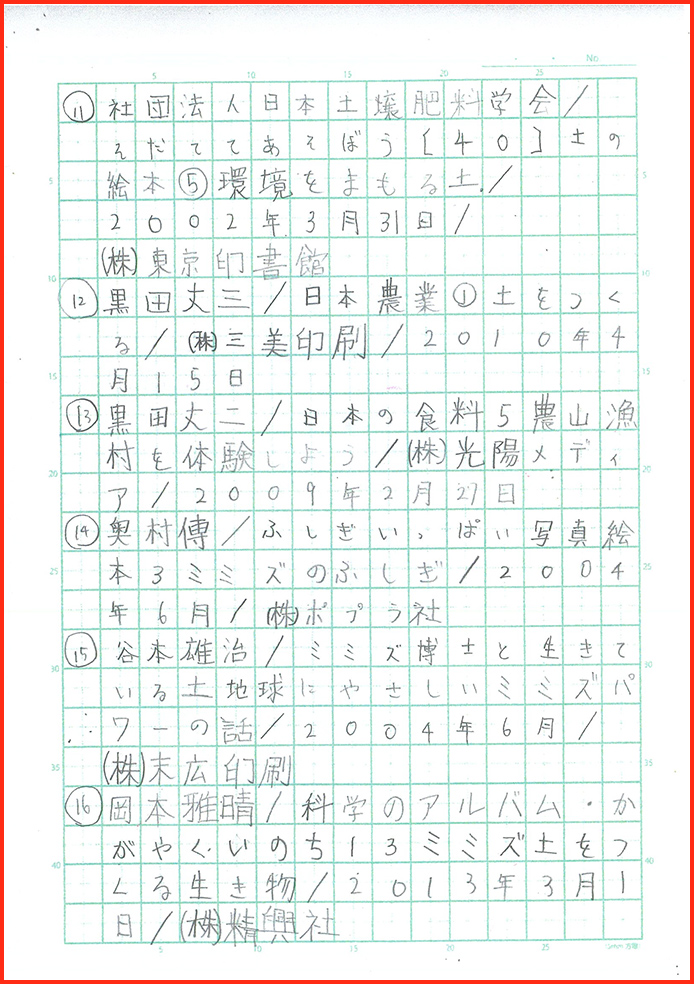 No
⑪社団法人日本土壌肥料学会/
そだててあそぼう[40]土の
絵本⑤環境をまもる土/
2002年3月31日/
(株)東京印書館
⑫黒田丈三/日本農業①土をつく
る/(株)三美印刷/2010年4
月15日
⑬黒田丈二/日本の食料5農山漁
村を体験しよう/(株)光陽メディ
ア/2009年2月27日
⑭奥村傳/ふしぎいっぱい写真絵
本3ミミズのふしぎ/2004
年6月/(株)ポプラ社
⑮谷本雄治/ミミズ博士と生きて
いる土地球にやさしいミミズパ
ワーの話/2004年6月/
(株)末広印刷
⑯岡本雅晴/科学のアルバム・か
がやくいのち13ミミズ土をつ
くる生き物/2013年3月1
日/(株)精興社